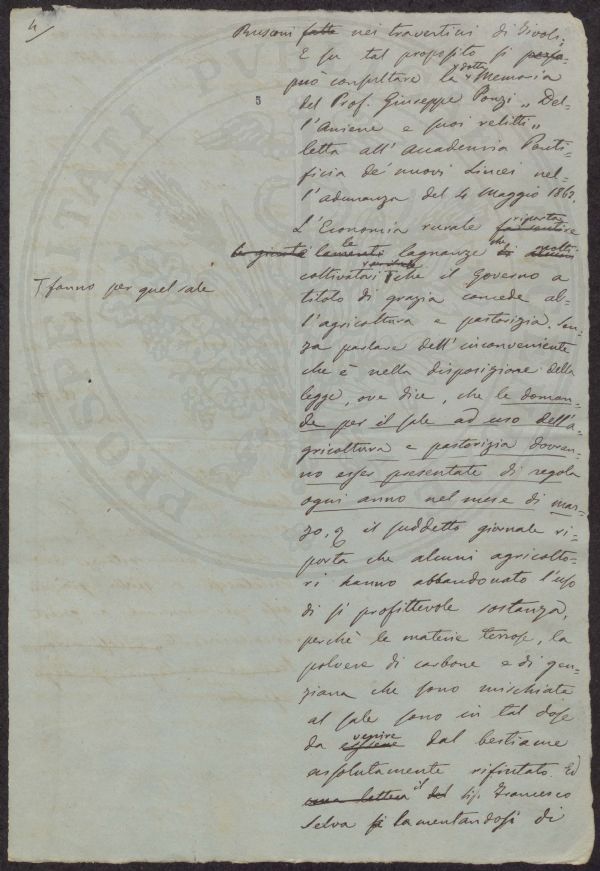 4/
5
Rusconi fatte nei travertini di Tivoli.
E su tal proposito si
può consultare la dotta Memoria
del Prof. Giuseppe Ponzi „ Del-
l'Aniene e suoi relitti „
letta all'Accademia Ponti-
ficia de' nuovi Lincei nel-
l'adunanza del 4 Maggio 1862.
L'Economia rurale riporta
le giuste lamenti le lagnanze che molti
coltivatori T che il Governo a
T fanno per quel sale
titolo di grazia concede al-
l'agricoltura e pastorizia. Sen-
za parlare dell'inconveniente
che è nella disposizione della
legge, ove dice, che le doman-
de per il sale ad uso dell'a-
gricoltura e pastorizia dovran-
no esser presentate di regola
ogni anno nel mese di mar-
zo, il suddetto giornale ri-
porta che alcuni agricolto-
ri hanno abbandonato l'uso
di sì profittevole sostanza,
perchè le materie terrose, la
polvere di carbone e di gen-
ziana che sono mischiate
al sale sono in tal dose
da essere venire dal bestiame
assolutamente rifiutato. Ed
una lettera del il Sig. Francesco
Selva si lamentandosi di
PROSPERITATI PUBL